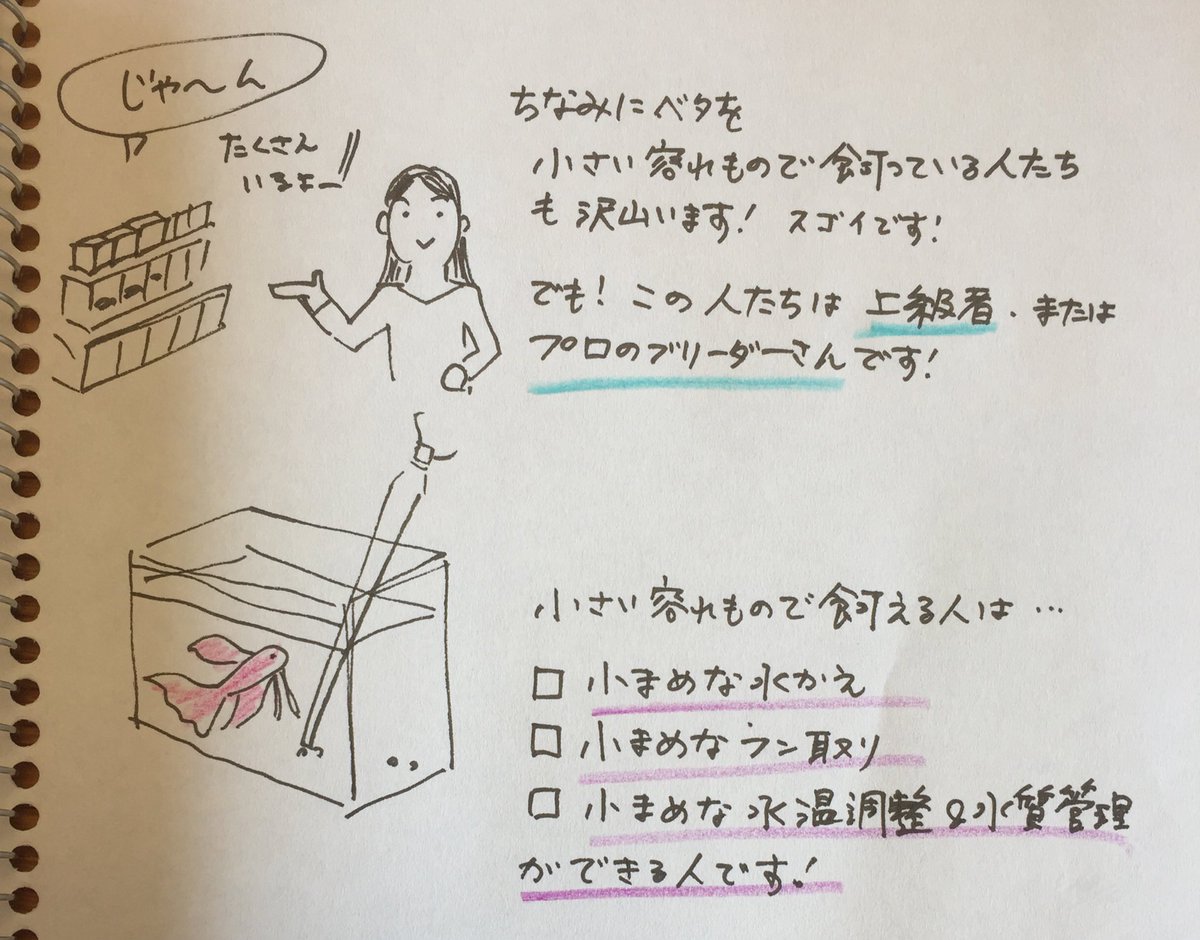 じゃ〜ん
たくさん
いるよー
ちなみにベタを
小さい容れもので飼っている人たち
も沢山います! スゴイです!
でも! この人たちは 上級者、または
プロのブリーダーさんです!
小さい容れもので飼える人は…
□ 小まめな水かえ
□ 小まめなフン取り
□ 小まめな水温調整&水質管理
ができる人です!